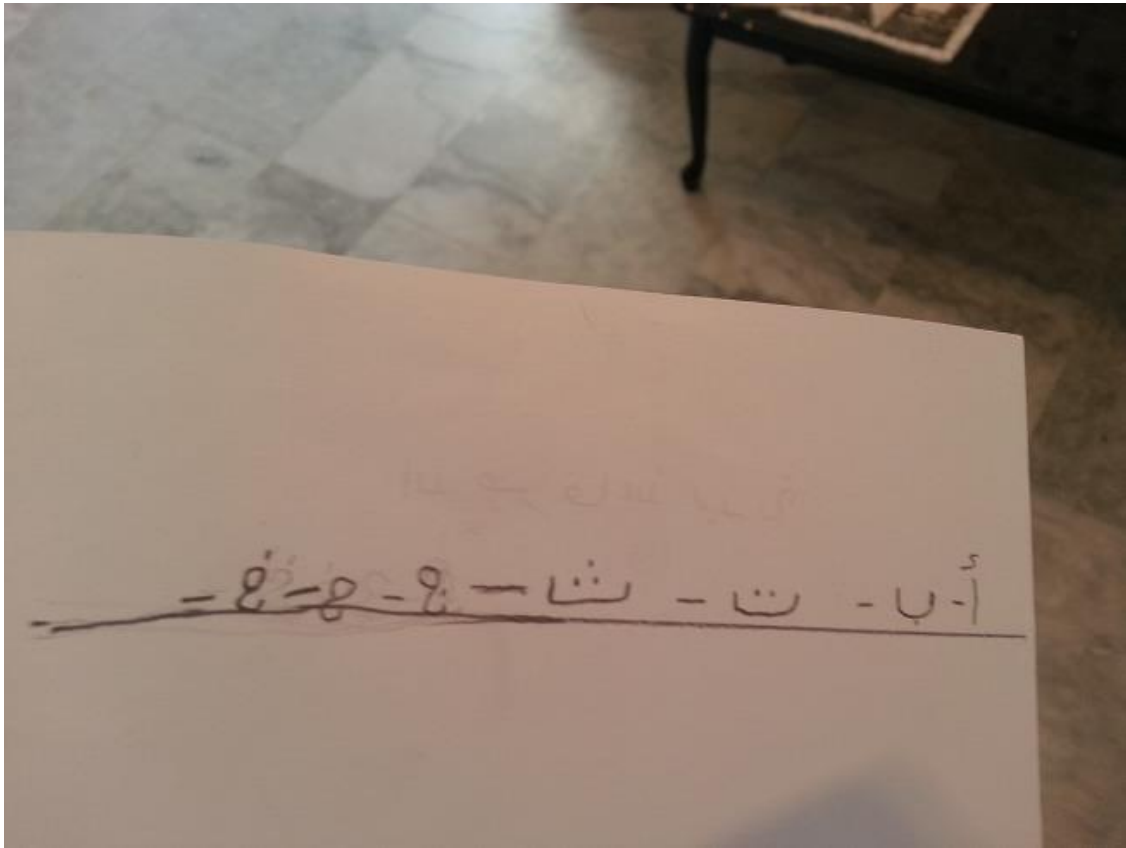 أ - ب - ت - ث - ج - ح - خ -